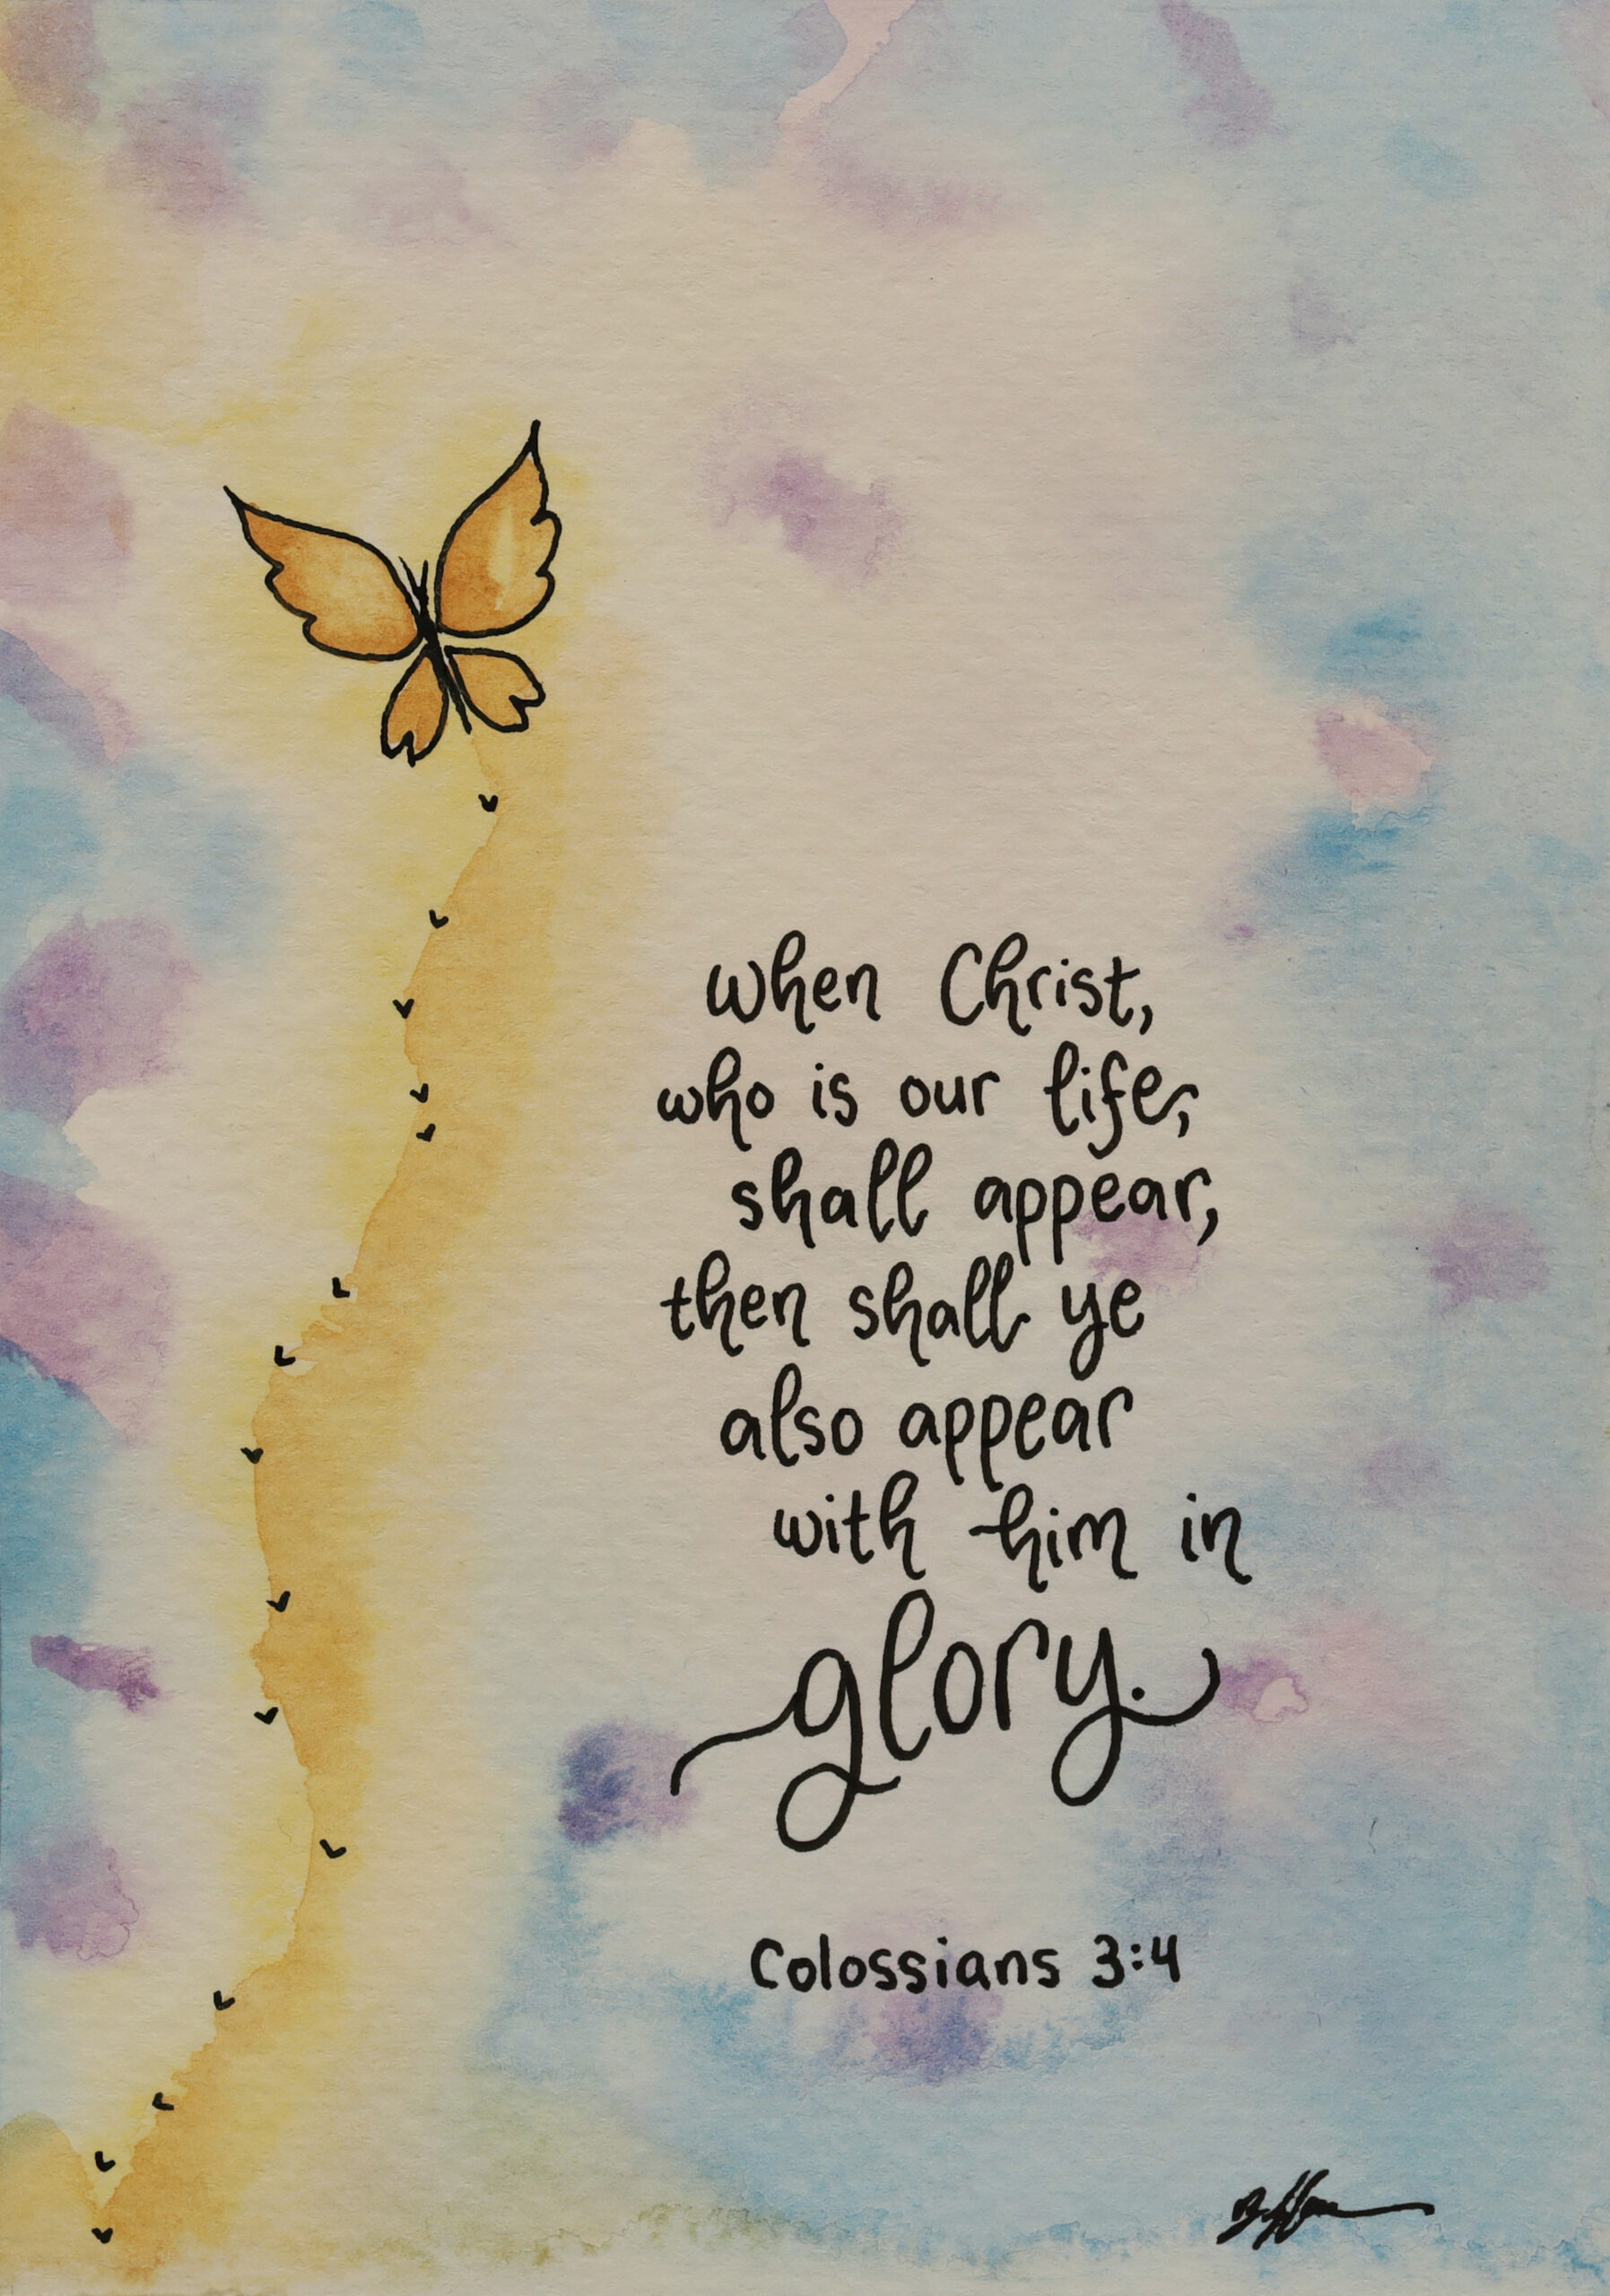 When Christ,
who is our life,
shall appear,
then shall ye
also appear
with him in
glory.
Colossians 3:4